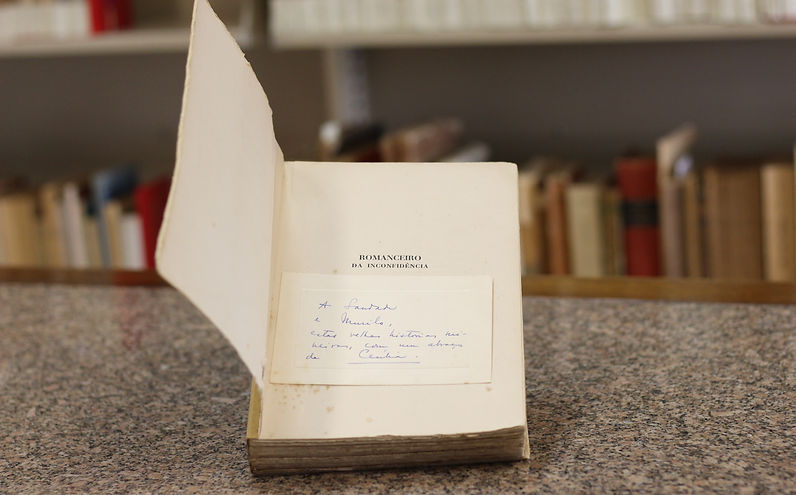 ROMANCEIRO
DA INCONFIDÊNCIA
A Saudade
e Murilo,
estas velhas histórias mi-
neiras, com um abraço
da Cecília.